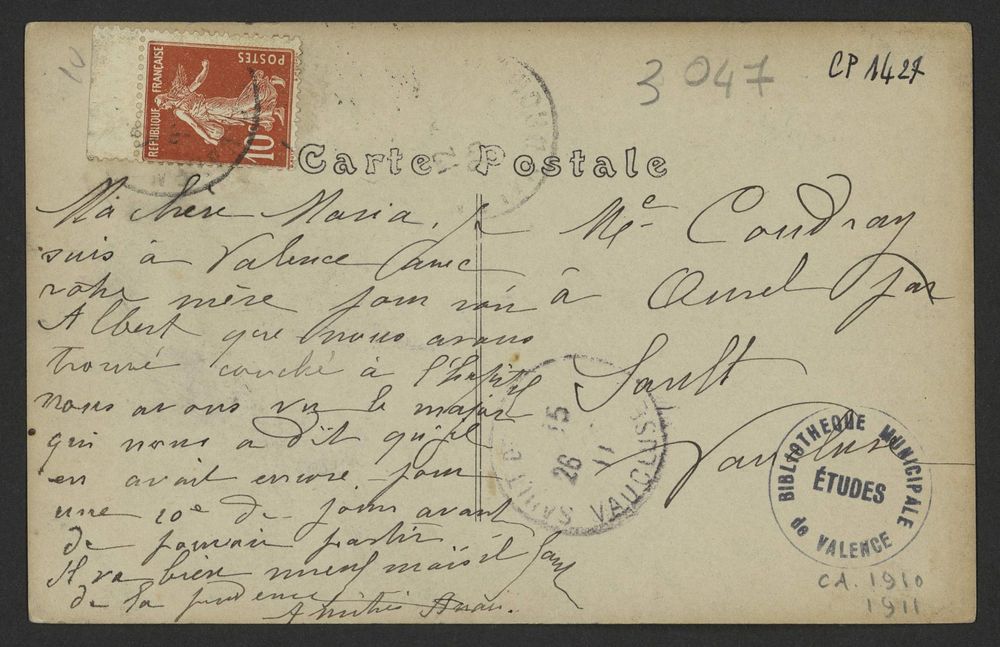 10
3 047
CP 1427
POSTES
REPUBLIQUE FRANÇAISE
10c
Carte Postale
Ma chère Maria, je
suis à Valence avec
votre mère pour voir
Albert que nous avons
trouvé couché à l'hôpital
nous avons vu le major
qui nous a dit qu'il
en avait encore pour
une 10e de jours avant
de pouvoir partir
Il va bien mieux mais il faut
de la prudence
Amitiés
Me Coudray
à Aurel par
Sault
Vaucluse
SAULT
15
26
11
VAUCLUSE
BIBLIOTHEQUE MUNICIPALE
ÉTUDES
de VALENCE
CA. 1910
1911